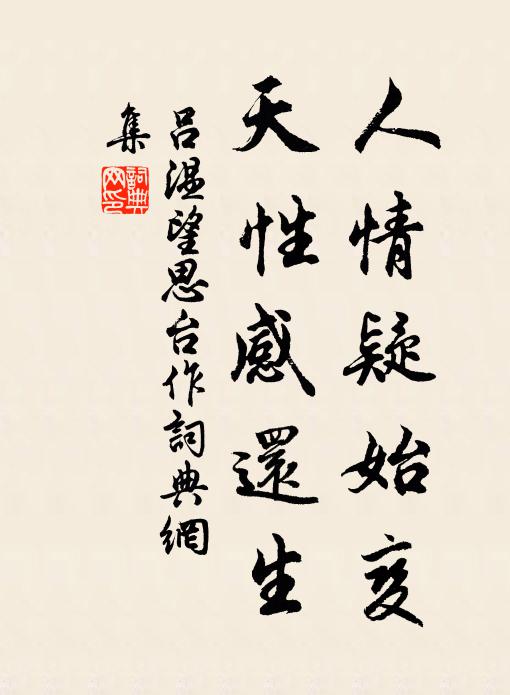 人情疑始变
天性感還生
吕温望思台作詞典網
集
詞典
网印